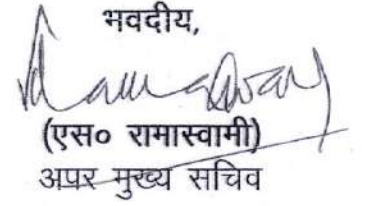 भवदीय,
(एस० रामास्वामी)
अपर मुख्य सचिव